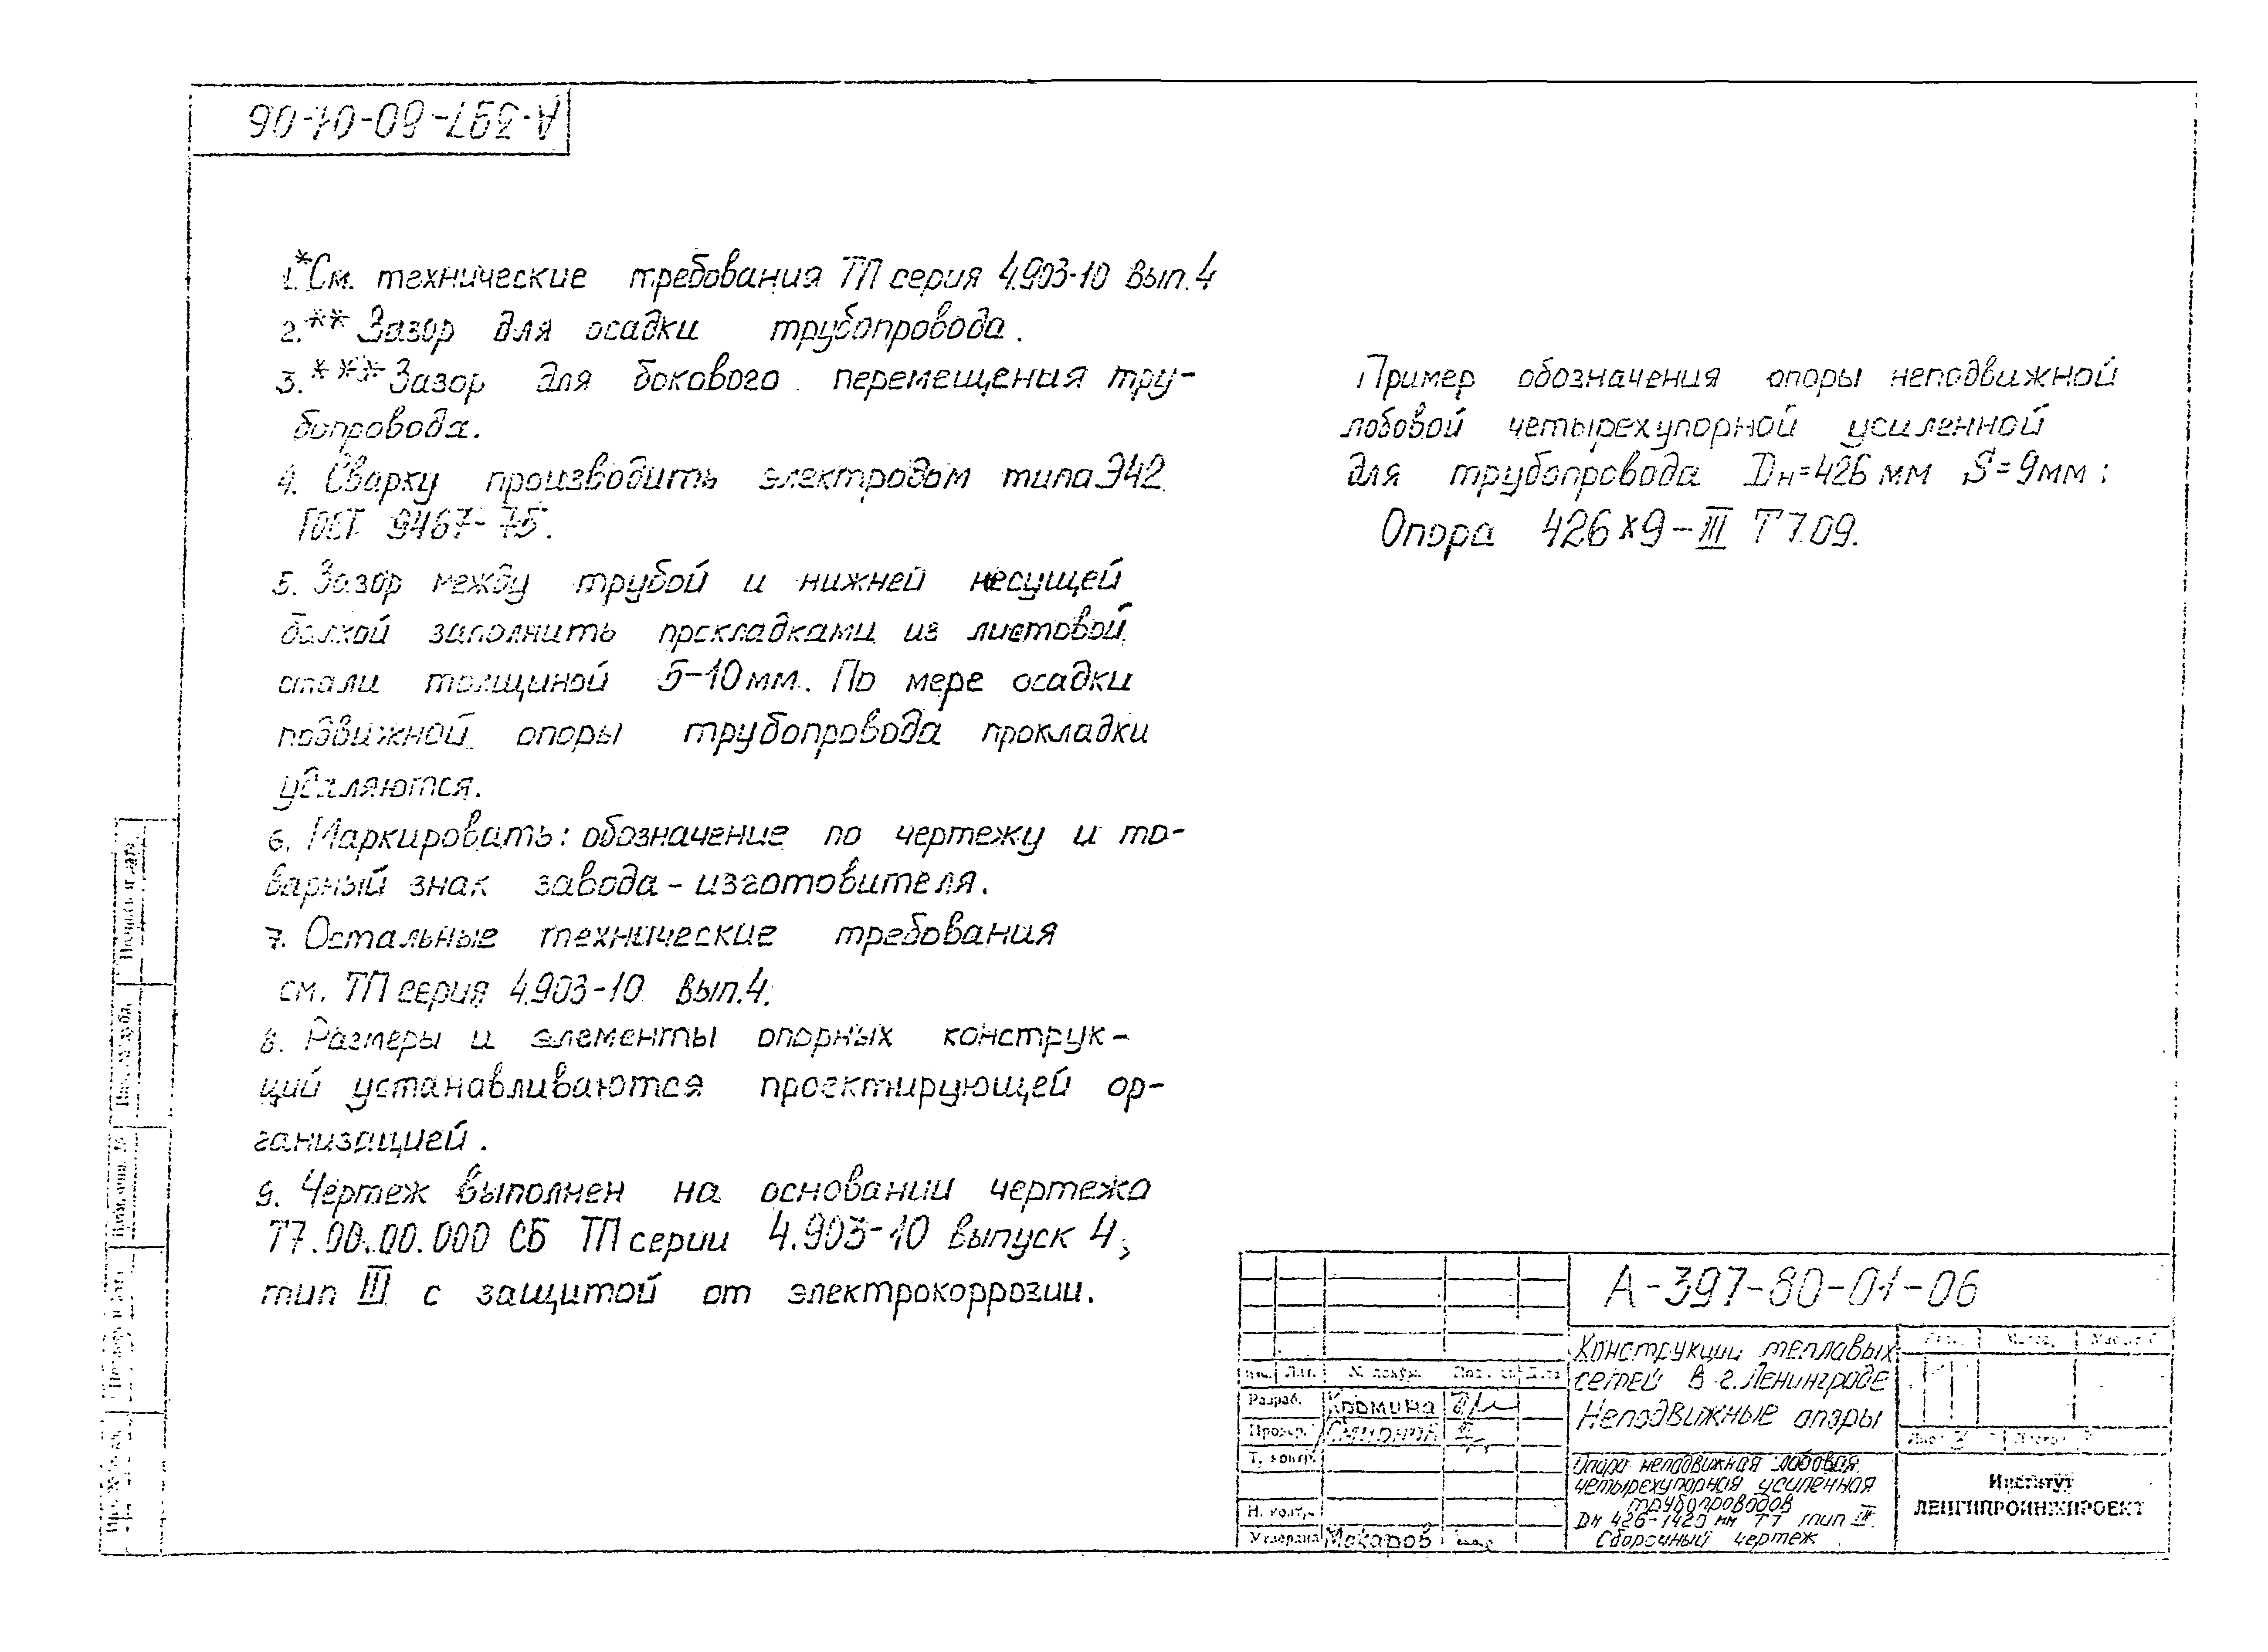 А-397-80-01-06
1.* См. технические требования ТП серия 4.903-10 Вып. 4
2.** Зазор для осадки трубопровода.
3.*** Зазор для бокового перемещения тру-
бопровода.
4. Сварку производить электродом типа Э42
ГОСТ 9467-75.
5. Зазор между трубой и нижней несущей
балкой заполнить прокладками из листовой
стали толщиной 5-10 мм. По мере осадки
подвижной опоры трубопровода прокладки
удаляются.
6. Маркировать: обозначение по чертежу и то-
варный знак завода-изготовителя.
7. Остальные технические требования
см. ТП серия 4.903-10 Вып. 4.
8. Размеры и элементы опорных конструк-
ций устанавливаются проектирующей ор-
ганизацией.
9. Чертеж выполнен на основании чертежа
Т7.00.00.000 СБ ТП серии 4.903-10 выпуск 4,
тип III с защитой от электрокоррозии.
Пример обозначения опоры неподвижной
лобовой четырехупорной усиленной
для трубопровода Dн=426 мм S=9 мм:
Опора 426х9-III Т7.09.
А-397-80-01-06
Конструкции тепловых
сетей в г. Ленинграде
Неподвижные опоры
Опора неподвижная лобовая
четырехупорная усиленная
трубопроводов
Dн 426-1420 мм Т7 тип III.
Сборочный чертеж
Изм. Лист № докум.
Разраб.
Провер.
Т. контр.
Н. контр.
Утвердил Макаров
Институт
ЛЕНГИПРОИНЖПРОЕКТ